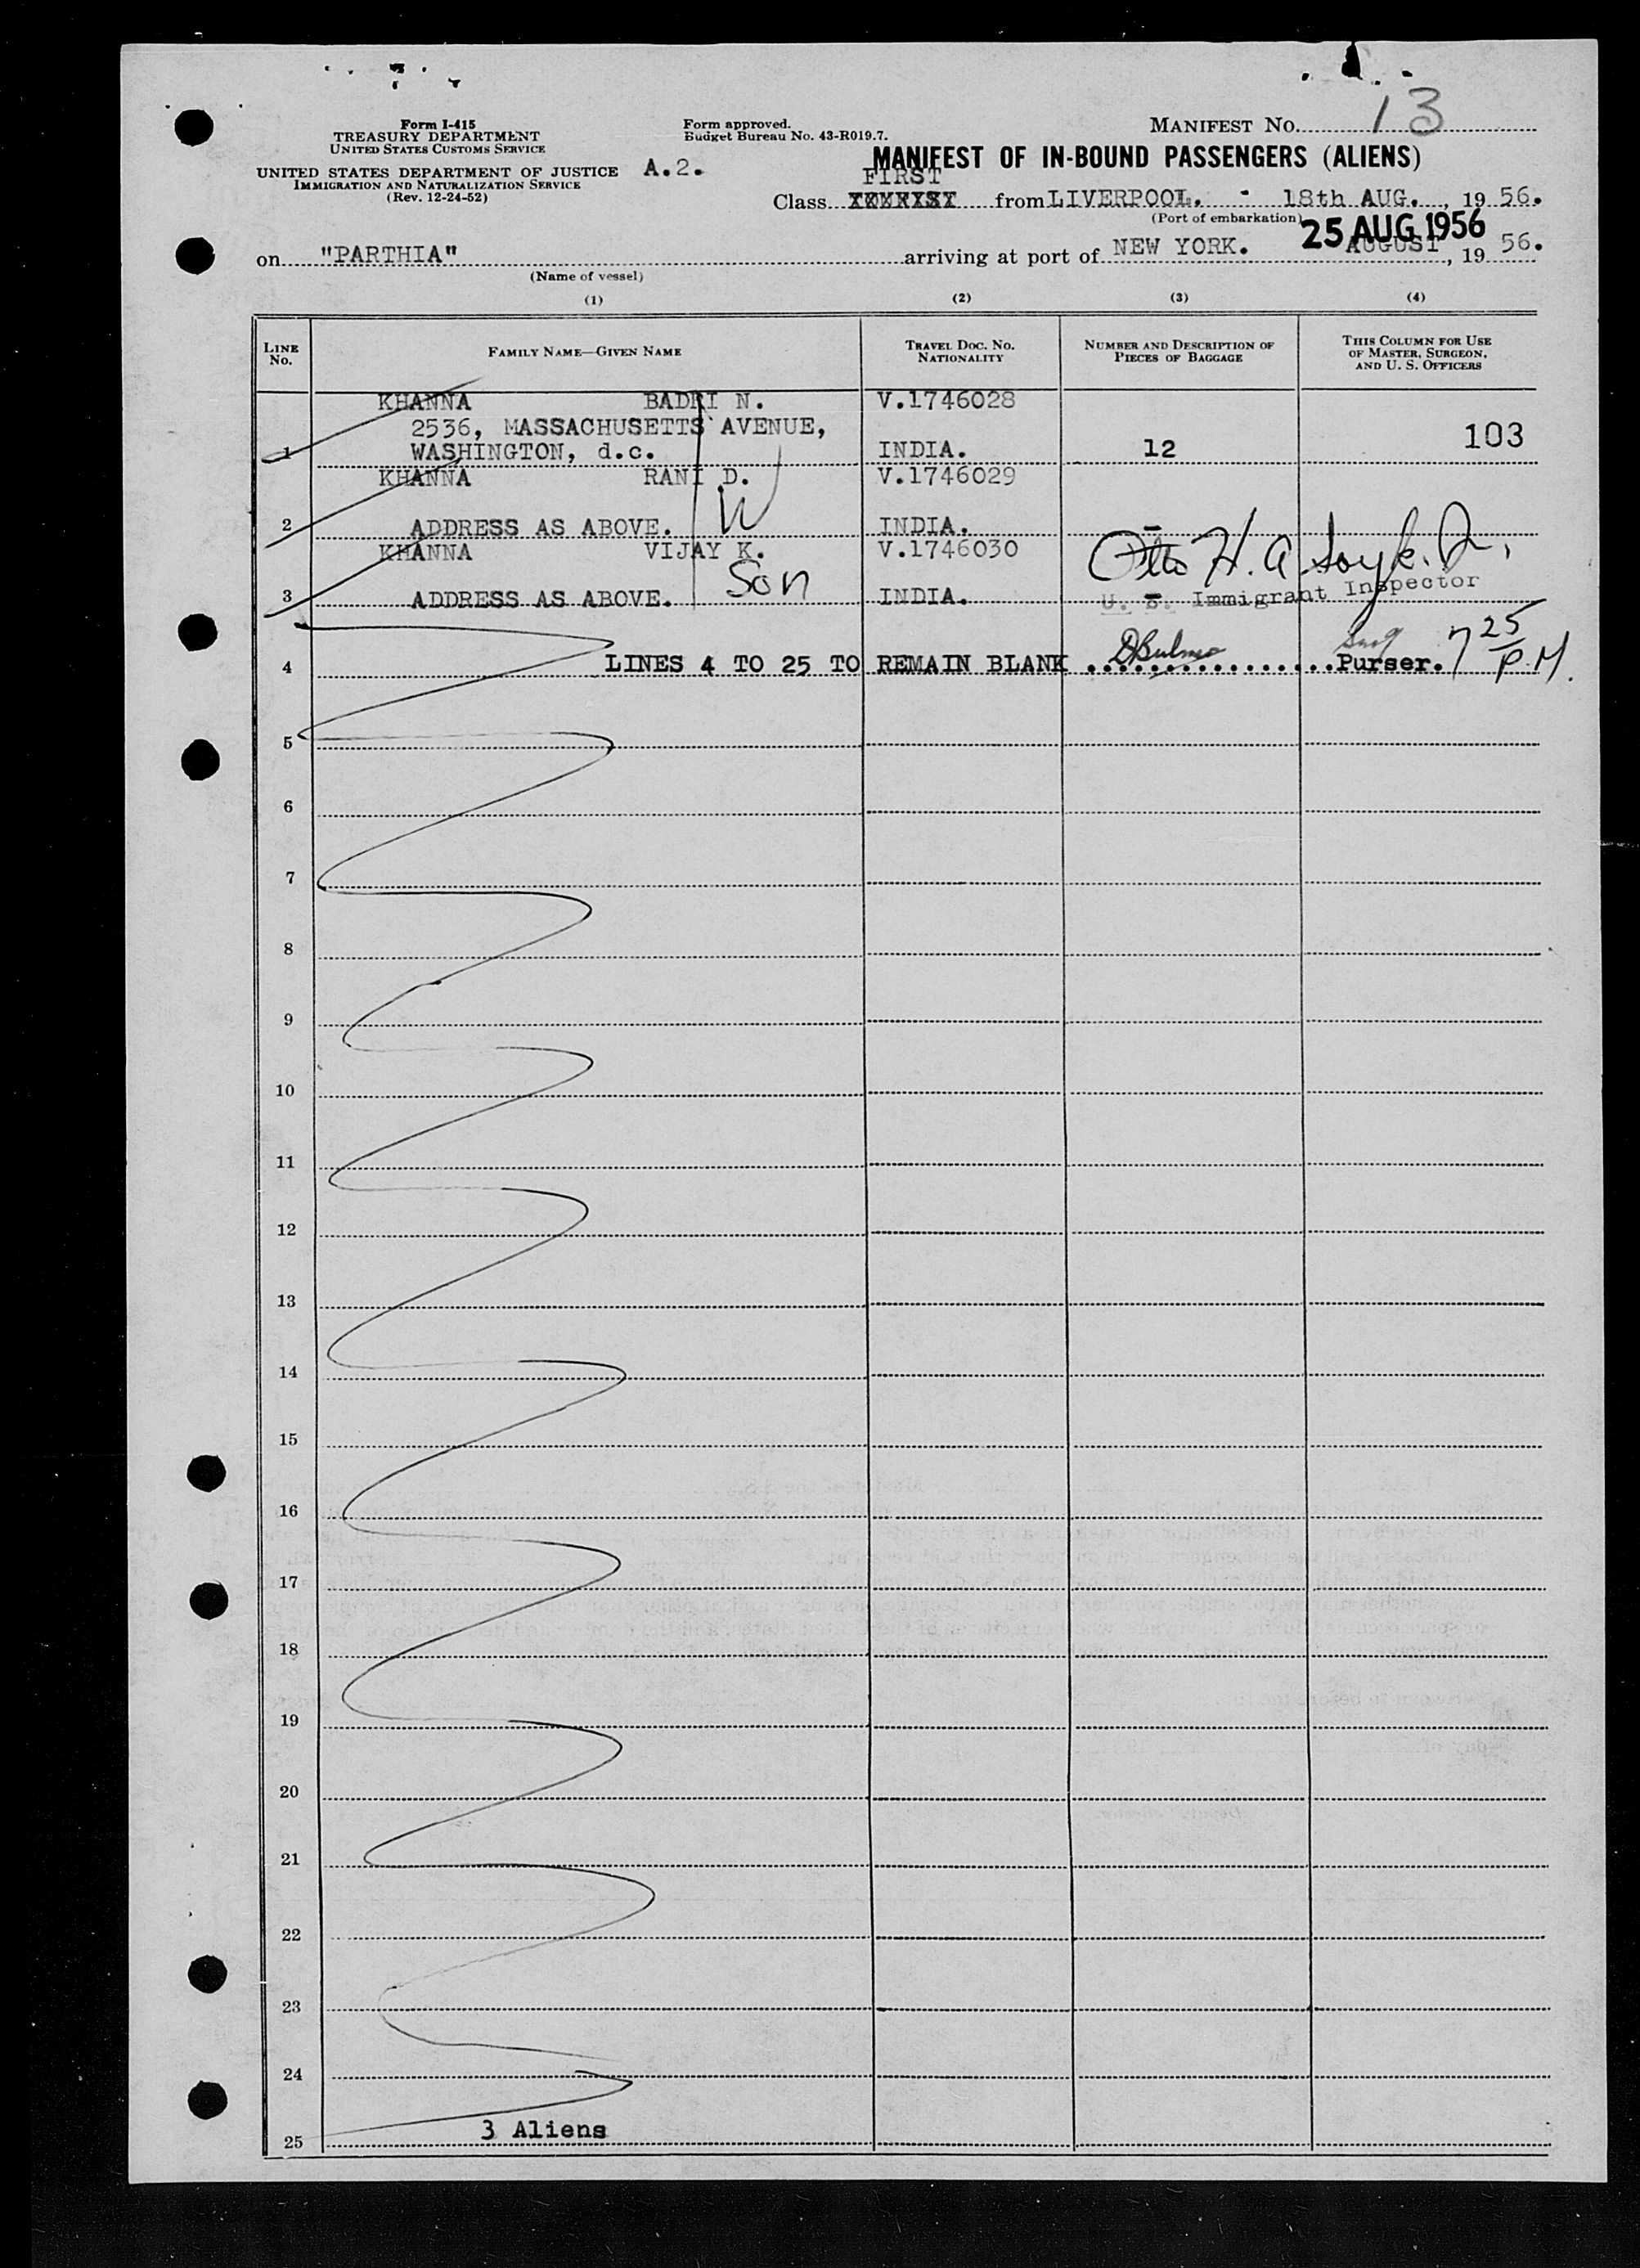 MANIFEST No. 13
Form I-415
TREASURY DEPARTMENT
UNITED STATES CUSTOMS SERVICE
UNITED STATES DEPARTMENT OF JUSTICE
IMMIGRATION AND NATURALIZATION SERVICE
(Rev. 12-24-52)
Form approved.
Budget Bureau No. 43-R019.7.
A.2.
MANIFEST OF IN-BOUND PASSENGERS (ALIENS)
FIRST
Class from LIVERPOOL. - 18th AUG. , 19 56.
(Port of embarkation)
25 AUG 1956
on "PARTHIA" arriving at port of NEW YORK. AUGUST , 19 56.
(Name of vessel)
(1) (2) (3) (4)
LINE No. FAMILY NAME—GIVEN NAME TRAVEL DOC. No. NATIONALITY NUMBER AND DESCRIPTION OF PIECES OF BAGGAGE THIS COLUMN FOR USE OF MASTER, SURGEON, AND U. S. OFFICERS
KHANNA BADRI N. V.1746028
2536, MASSACHUSETTS AVENUE,
1 WASHINGTON, d.c. INDIA. 12 103
KHANNA RANI D. V.1746029
W
2 ADDRESS AS ABOVE. INDIA. -
KHANNA VIJAY K. V.1746030
Otto H. A
Son
3 ADDRESS AS ABOVE. INDIA. -
U. S. Immigrant Inspector
4 LINES 4 TO 25 TO REMAIN BLANK ................Purser. 7 25 P.M.
5
6
7
8
9
10
11
12
13
14
15
16
17
18
19
20
21
22
23
24
25 3 Aliens